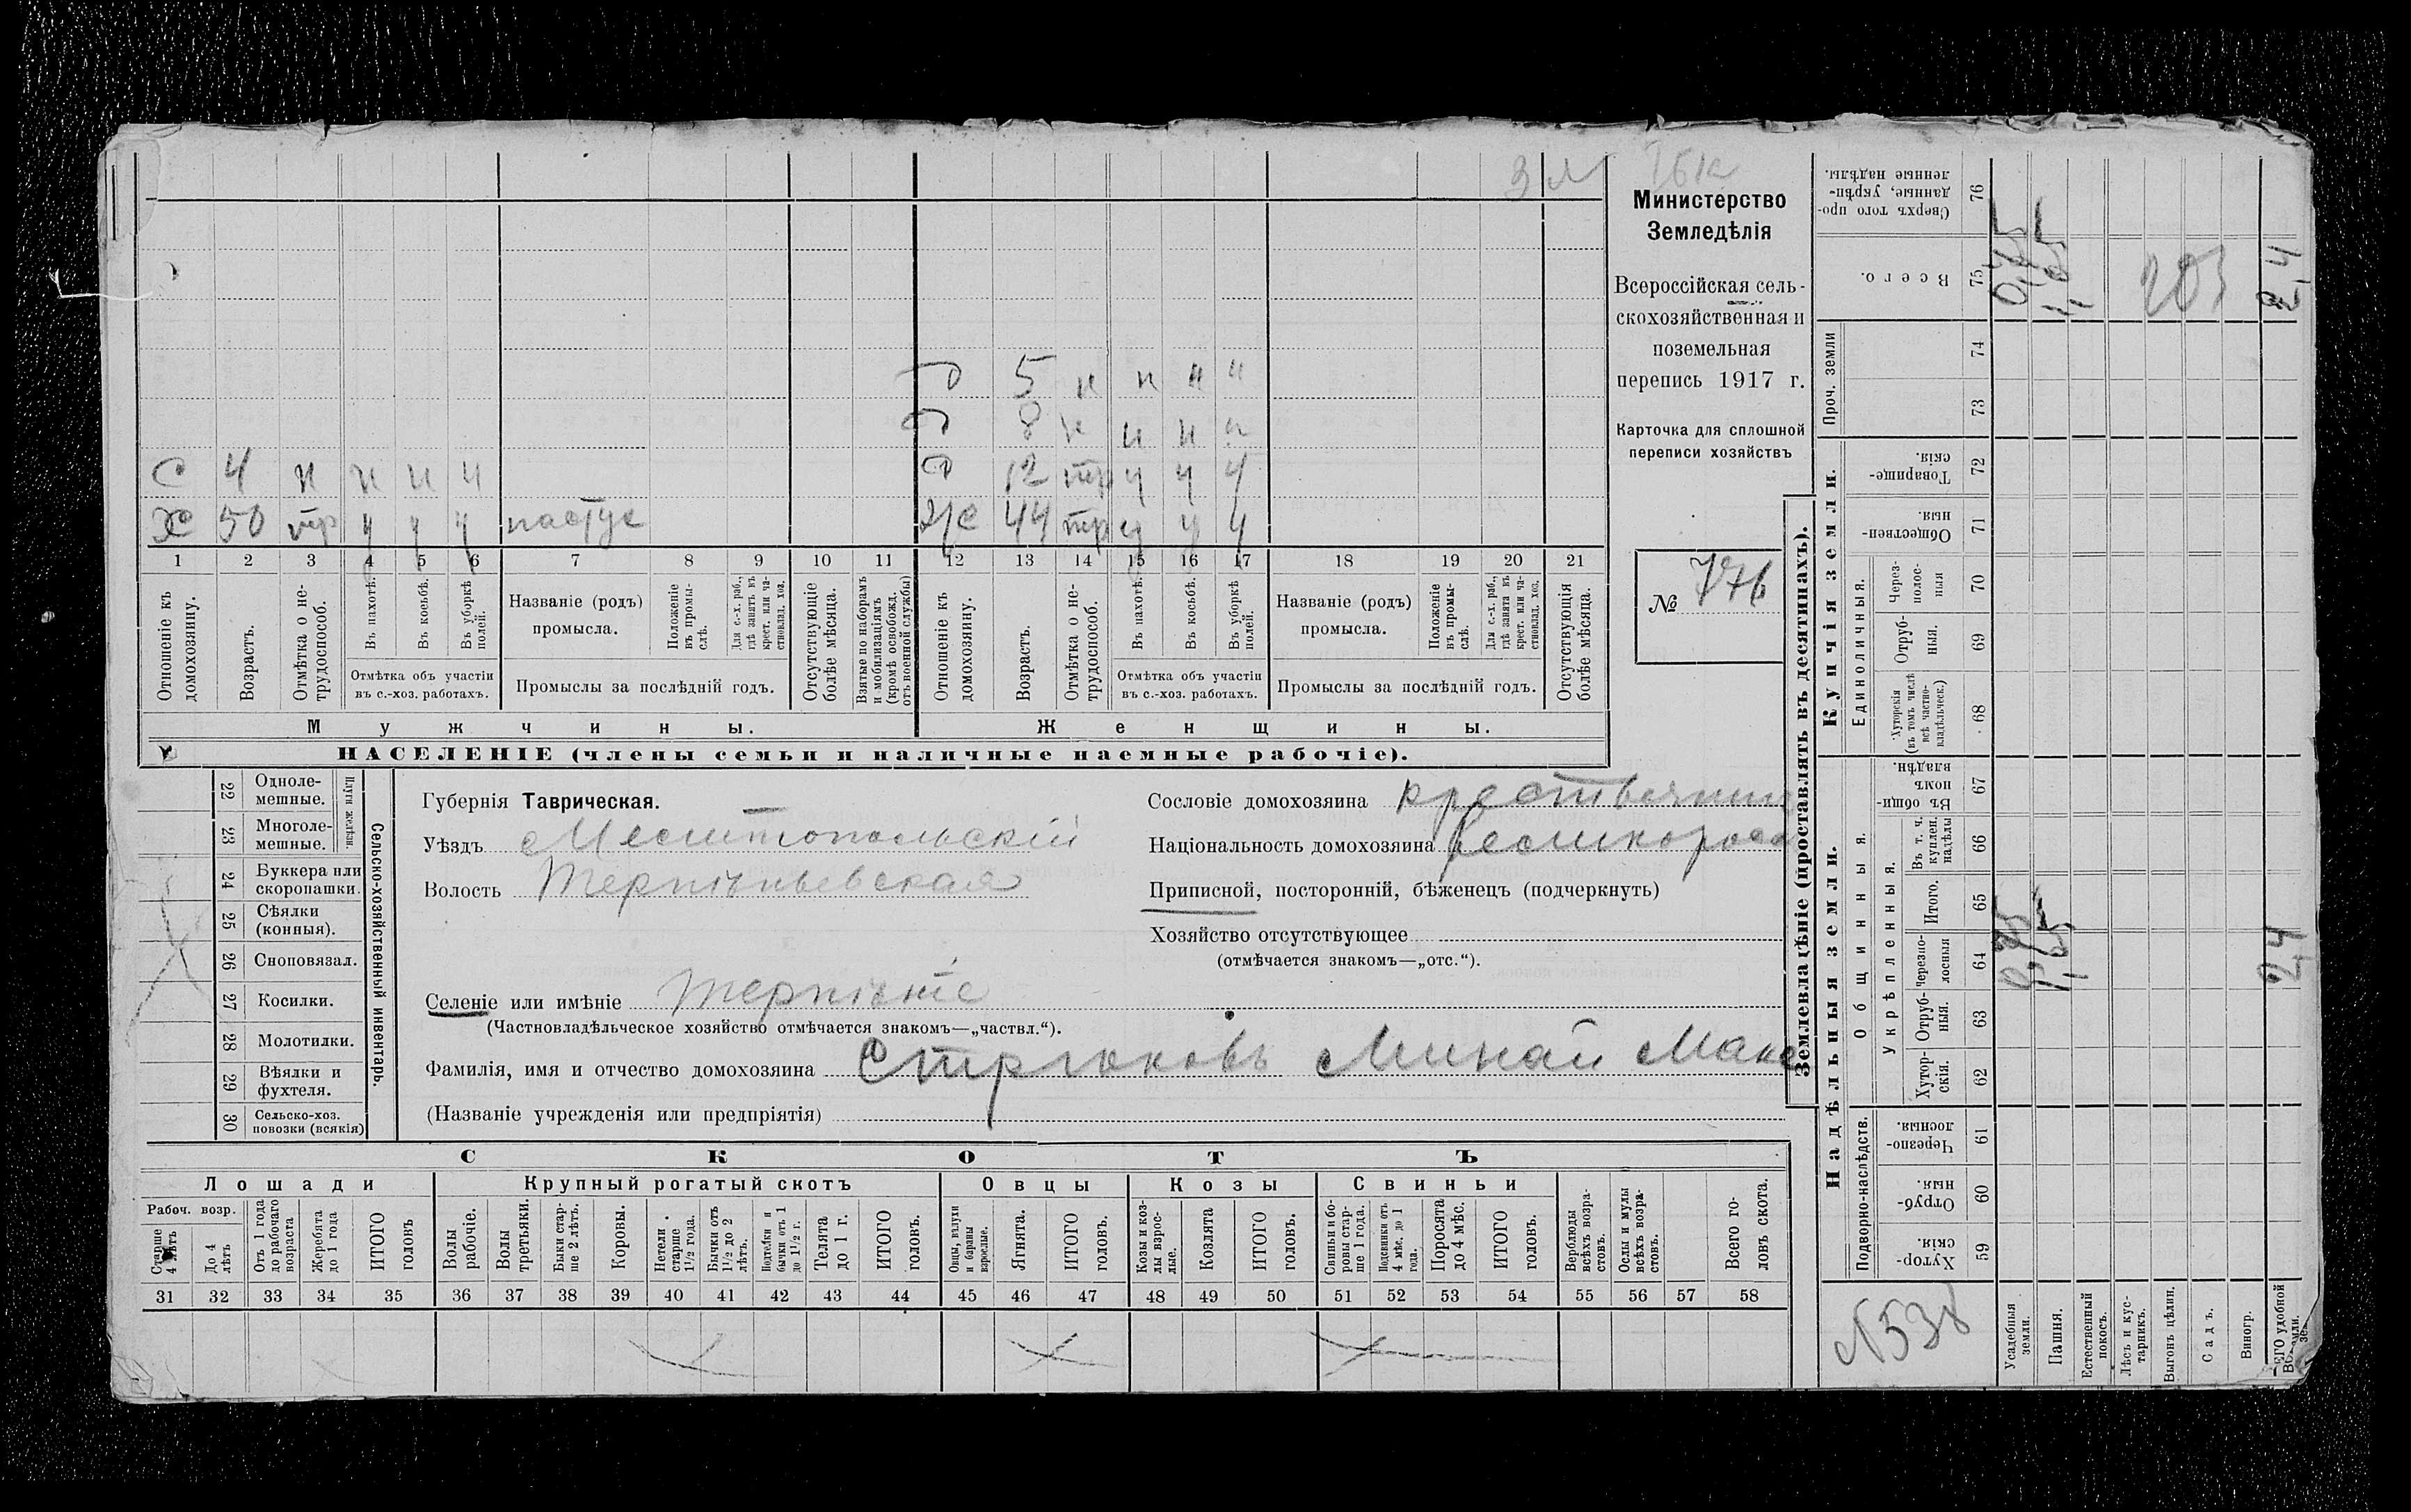 Министерство
Земледѣлія
Всероссійская сель-
скохозяйственная и
поземельная
перепись 1917 г.
Карточка для сплошной
переписи хозяйствъ
№ 776
Д 5 н н н н
Д 8 н н н н
С 4 н н н н
Д 12 тр у у у
Х 50 тр у у у пастух
Ж 44 тр у у у
1 2 3 4 5 6 7 8 9 10 11 12 13 14 15 16 17 18 19 20 21
Отношеніе къ домохозяину.
Возрастъ.
Отмѣтка о не-трудоспособ.
Въ пахотѣ.
Въ косьбѣ.
Въ уборкѣ полей.
Отмѣтка объ участіи въ с.-хоз. работахъ.
Названіе (родъ) промысла.
Положеніе въ промы-слѣ.
Для с.-х. раб., гдѣ занятъ въ крест. или ча-стновлад. хоз.
Промыслы за послѣдній годъ.
Отсутствующіе болѣе мѣсяца.
Взятые по наборамъ и мобилизаціямъ (кромѣ освобожд. отъ военной службы)
Отношеніе къ домохозяину.
Возрастъ.
Отмѣтка о не-трудоспособ.
Въ пахотѣ.
Въ косьбѣ.
Въ уборкѣ полей.
Отмѣтка объ участіи въ с.-хоз. работахъ.
Названіе (родъ) промысла.
Положеніе въ промы-слѣ.
Для с.-х. раб., гдѣ занята въ крест. или ча-стновлад. хоз.
Промыслы за послѣдній годъ.
Отсутствующія болѣе мѣсяца.
Мужчины.
Женщины.
НАСЕЛЕНІЕ (члены семьи и наличные наемные рабочіе).
Губернія Таврическая.
Уѣздъ Мелитопольскій
Волость Терпѣньевская
Сословіе домохозяина крестьянин
Національность домохозяина великоросс
Приписной, посторонній, бѣженецъ (подчеркнуть)
Хозяйство отсутствующее
(отмѣчается знакомъ—„отс.“).
Селеніе или имѣніе Терпѣніе
(Частновладѣльческое хозяйство отмѣчается знакомъ—„частвл.“).
Фамилія, имя и отчество домохозяина Стрюковъ Минай Макс
(Названіе учрежденія или предпріятія)
Сельско-хозяйственный инвентарь.
Плуги желѣзн.
22 Одноле-мешные.
23 Многоле-мешные.
24 Буккера или скоропашки.
25 Сѣялки (конныя).
26 Сноповязал.
27 Косилки.
28 Молотилки.
29 Вѣялки и фухтеля.
30 Сельско-хоз. повозки (всякія)
СКОТЪ
Лошади
Крупный рогатый скотъ
Овцы
Козы
Свиньи
Рабоч. возр.
Старше 4 лѣтъ
До 4 лѣтъ
Отъ 1 года до рабочаго возраста
Жеребята до 1 года
ИТОГО головъ
Волы рабочіе.
Волы третьяки.
Быки стар-ше 2 лѣтъ.
Коровы.
Нетели старше 1½ года.
Бычки отъ 1½ до 2 лѣтъ.
Подтелки и бычки отъ 1 до 1½ г.
Телята до 1 г.
ИТОГО головъ.
Овцы, валухи и бараны взрослые.
Ягнята.
ИТОГО головъ.
Козы и коз-лы взрос-лые.
Козлята
ИТОГО головъ.
Свиньи и бо-ровы стар-ше 1 года.
Подсвинки отъ 4 мѣс. до 1 года.
Поросята до 4 мѣс.
ИТОГО головъ.
Верблюды всѣхъ возра-стовъ.
Ослы и мулы всѣхъ возра-стовъ.
Всего го-ловъ скота.
31 32 33 34 35 36 37 38 39 40 41 42 43 44 45 46 47 48 49 50 51 52 53 54 55 56 57 58
Землевладѣніе (проставлять въ десятинахъ).
Надѣльныя земли.
Купчія земли.
Проч. земли
Подворно-наслѣдств.
Общинныя.
Укрѣпленныя.
Единоличныя.
Сверхъ того про-данные, укрѣп-ленные надѣлы. 76
Всего. 75
74
73
Товарище-скія. 72
Обществен-ныя. 71
Через-полос-ныя 70
Отруб-ныя. 69
Хуторскія (въ томъ числѣ всѣ частно-владѣльческ.) 68
Въ общин-номъ владѣн. 67
Въ т. ч. куплен. надѣлы 66
Итого. 65
Черезпо-лосныя 64
Отруб-ныя. 63
Хутор-скія. 62
Черезпо-лосныя. 61
Отруб-ныя. 60
Хутор-скія. 59
2,4
2,4
№538
Усадебныя земли.
Пашня.
Естественный покосъ.
Лѣсъ и кус-тарникъ.
Выгонъ цѣлин.
Садъ.
Виногр.